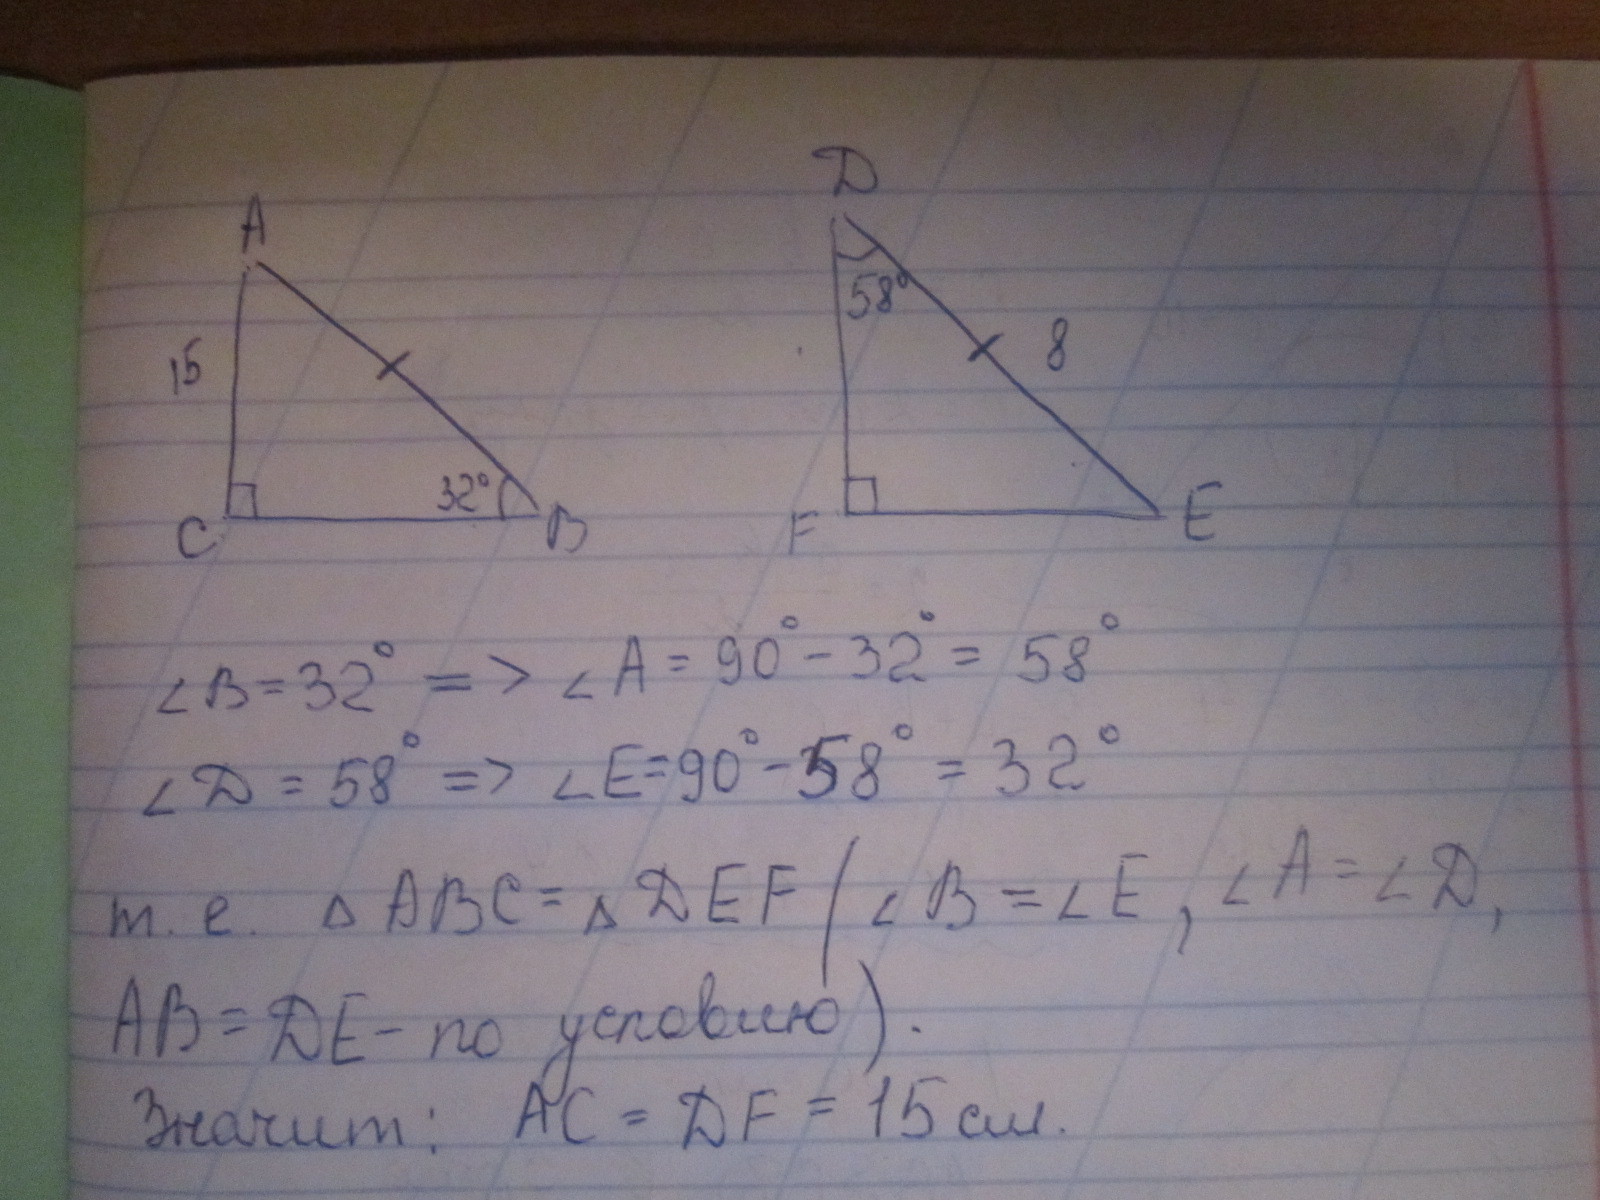 A
D
15
58°
8
32°
C
B
F
E
∠B=32° => ∠A=90°-32°=58°
∠D=58° => ∠E=90°-58°=32°
т.е. △ABC=△DEF (∠B=∠E, ∠A=∠D,
AB=DE- по условию).
Значит: AC=DF=15 см.